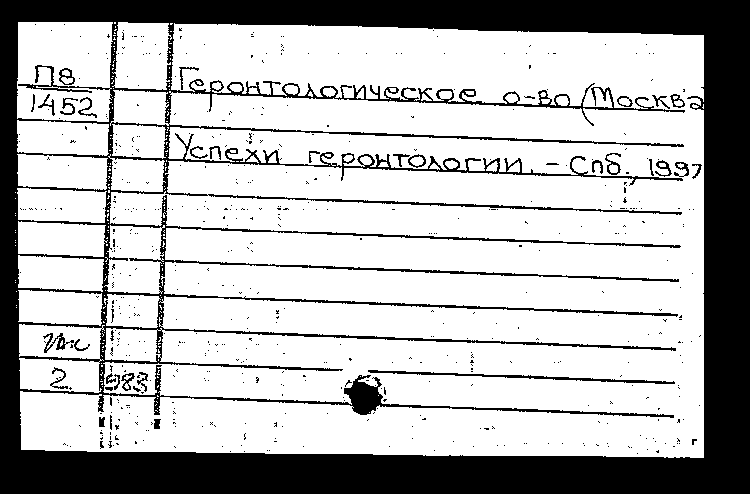 П8 Геронтологическое о-во (Москва
1452
Успехи геронтологии. - Спб., 1997
2 983